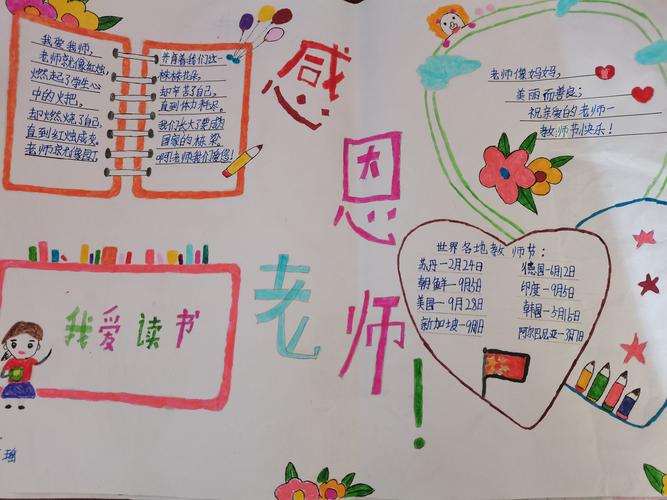 我爱我师,
老师就像红烛,
燃起了学生心
中的火把,
却燃烧了自己,
直到红烛成灰。
老师您就像园丁
养育着我们这一
株株花朵,
却辛苦了自己,
直到体力耗尽。
我们长大了要成为
国家的栋梁。
啊!老师我们爱您!
感
恩
老
师
!
老师像妈妈,
美丽而善良;
祝亲爱的老师—
教师节快乐!
我爱读书
世界各地教师节:
苏丹—2月24日
朝鲜—9月5日
美国—9月28日
新加坡—9月1日
德国—6月12日
印度—9月5日
韩国—5月16日
阿尔巴尼亚—3月7日
瑶